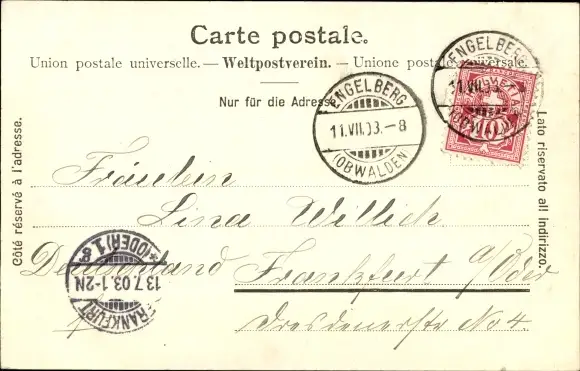 Carte postale.
Union postale universelle. — Weltpostverein. — Unione postale universale.
Nur für die Adresse.
ENGELBERG
11.VII.03.–8
(OBWALDEN)
ENGELBERG
11.VII.03.
(OBWALDEN)
10
Côté réservé à l'adresse.
Lato riservato all indirizzo.
Fräulein
Lina Willich
Deutschland Frankfurt a/Oder
Dresdenerstr No 4.
FRANKFURT
13.7.03.1-2N
*(ODER)1.g